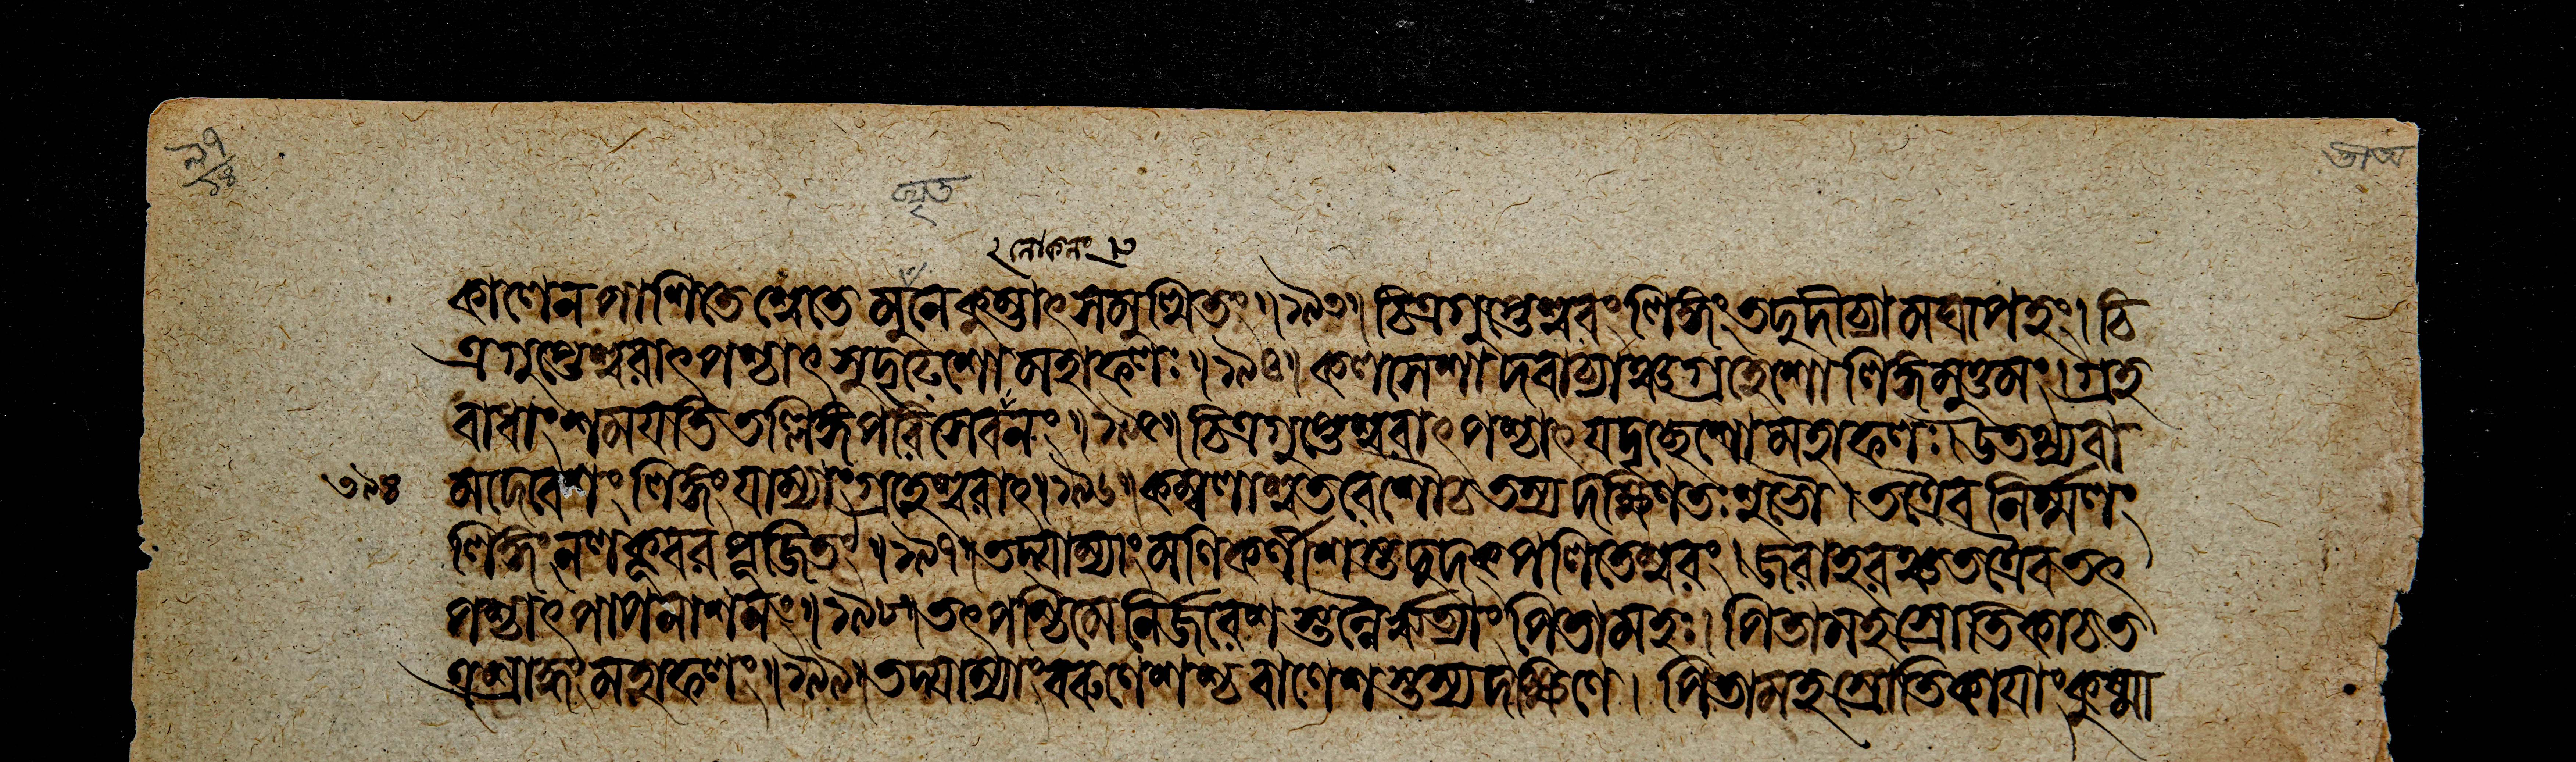 কালেন পাশিতে শ্বেতে মুনে কুম্ভাৎ সমুত্থিতং ॥৯৩॥ চিত্রগুপ্তেশ্বরং লিঙ্গং তদুদীচ্যামঘাপহং। চি
ত্রগুপ্তেশ্বরাৎ পশ্চাৎ সুদৃঢ়েশো মহাফলঃ ॥৯৪॥ কলসেশাদবাচ্যাঞ্চ গ্রহেশো লিঙ্গমুত্তমং। গ্রহ
বাধাং শময়তি তল্লিঙ্গপরিসেবনং ॥৯৫॥ চিত্রগুপ্তেশ্বরাৎ পশ্চাৎ যদৃচ্ছেশো মহাফলঃ। উতথ্যবা
৩৯৪ মদেবেশং লিঙ্গং যাম্যাং গ্রহেশ্বরাৎ ॥৯৬॥ কম্বলাশ্বতরেশৌ চ তস্য দক্ষিণতঃ শুভৌ। তত্রৈব নির্ম্মলং
লিঙ্গং নলকূবরপূজিতং ॥৯৭॥ তদ্যাম্যাং মণিকর্ণীশস্তদুদক্ পলিতেশ্বরং। জরাহরঞ্চ তত্রৈব তৎ
পশ্চাৎ পাপনাশনং ॥৯৮॥ তৎপশ্চিমে নির্জরেশস্তন্নৈরৃত্যাং পিতামহঃ। পিতামহস্রোতিকা চ ত
ত্র শ্রাদ্ধং মহাফলং ॥৯৯॥ তদ্যাম্যাং বরুণেশশ্চ বাণেশস্তস্য দক্ষিণে। পিতামহস্রোতিকায়াং কুষ্মা